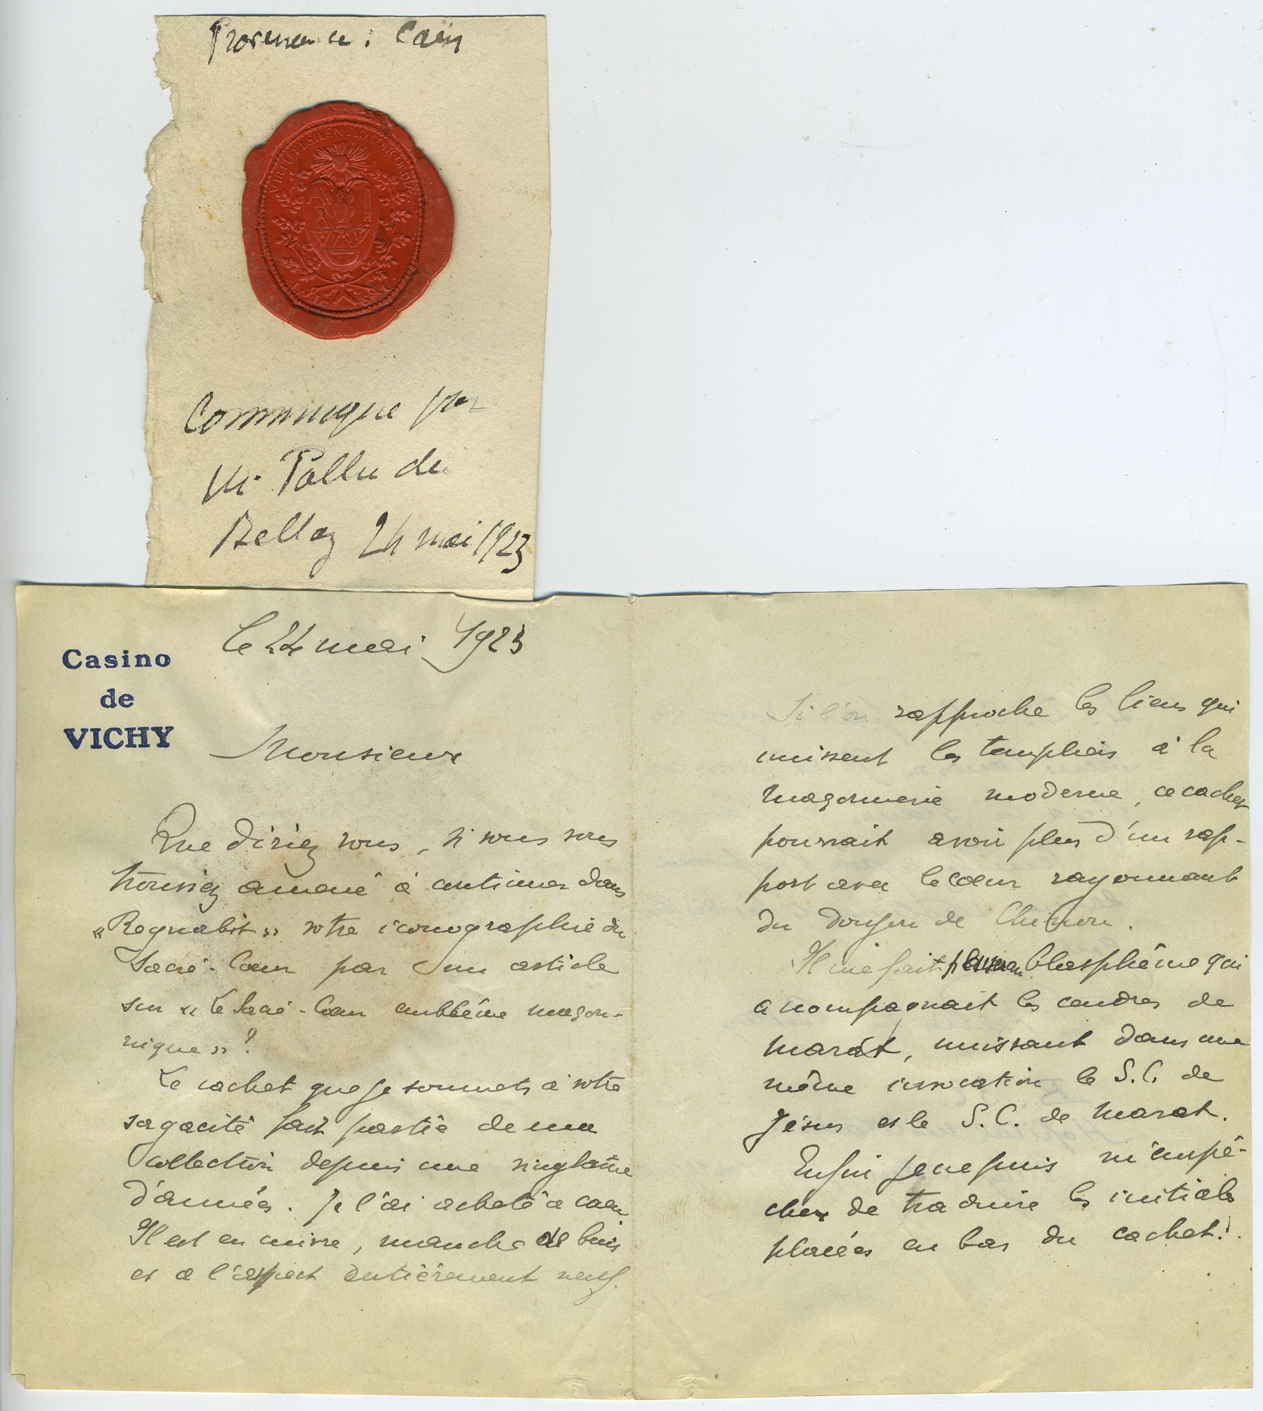 Provenance : Caen
VIRTUTE SILENTIO CONCORDIA
Communiqué par
Mr Pallu du
Bellay 24 mai 1923
Casino
de
VICHY
le 24 mai 1923
Monsieur
Que diriez vous, si vous vous
trouviez amené à continuer dans
« Regnabit » votre iconographie du
Sacré-Cœur par un article
sur « Le Sacré-Cœur emblême maçon-
nique » ?
Le cachet que je soumets à votre
sagacité fait partie de ma
collection depuis une vingtaine
d'années. Je l'ai acheté à Caen
Il est en cuivre, manche de buis
et a l'aspect entièrement neuf.
Si l'on rapproche les liens qui
unissent les templiers à la
maçonnerie moderne, ce cachet
pourrait avoir plus d'un rap-
port avec le cœur rayonnant
du donjon de Chinon.
Il me fait penser au blasphême qui
accompagnait les cendres de
Marat, unissant dans une
même invocation le S.C. de
Jésus et le S.C. de Marat.
Enfin je ne puis m'empê-
cher de traduire les initiales
placées en bas du cachet!.